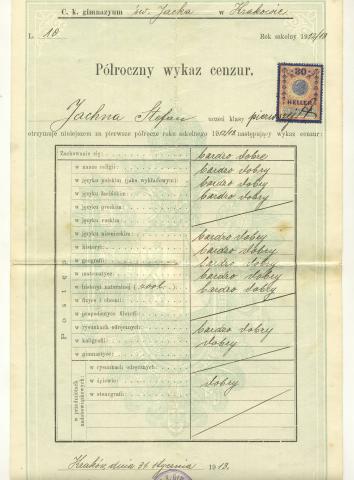 C. k. gimnazyum św. Jacka w Krakowie
L. 18 Rok szkolny 1912/13
Półroczny wykaz cenzur.
30
HELLER
Jachna Stefan uczeń klasy pierwszej A
otrzymuje niniejszem za pierwsze półrocze roku szkolnego 1912/13 następujący wykaz cenzur:
Zachowanie się: bardzo dobre
Postęp
w nauce religii: bardzo dobry
w języku polskim (jako wykładowym): bardzo dobry
w języku łacińskim: bardzo dobry
w języku greckim:
w języku ruskim:
w języku niemieckim: bardzo dobry
w historyi: bardzo dobry
w geografii: bardzo dobry
w matematyce: bardzo dobry
w historyi naturalnej (zool.): bardzo dobry
w fizyce i chemii:
w propedeutyce filozofii:
w rysunkach odręcznych: bardzo dobry
w kaligrafii: dobry
w gimnastyce:
w przedmiotach nadobowiązkowych:
w rysunkach odręcznych:
w śpiewie: dobry
w stenografii:
Kraków, dnia 31 stycznia 1913.